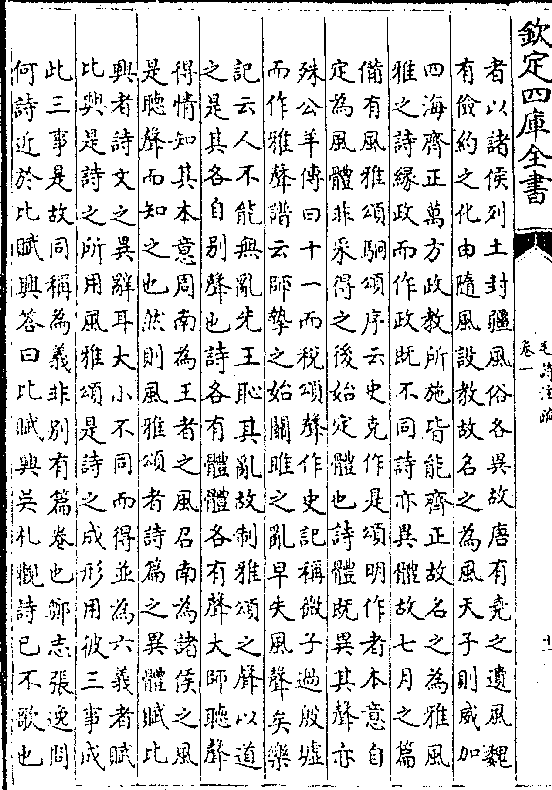 欽定四庫全書
毛詩注疏
卷一
十一
者以諸侯列土封疆風俗各異故唐有堯之遺風魏
有儉約之化由隨風設教故名之為風天子則威加
四海齊正萬方政教所施皆能齊正故名之為雅風
雅之詩縁政而作政既不同詩亦異體故七月之篇
備有風雅頌駉頌序云史克作是頌明作者本意自
定為風體非采得之後始定體也詩體既異其聲亦
殊公羊傳曰十一而稅頌聲作史記稱微子過殷墟
而作雅聲譜云師摯之始關雎之亂早失風聲矣樂
記云人不能無亂先王恥其亂故制雅頌之聲以道
之是其各自別聲也詩各有體體各有聲大師聽聲
得情知其本意周南為王者之風召南為諸侯之風
是聽聲而知之也然則風雅頌者詩篇之異體賦比
興者詩文之異辭耳大小不同而得並為六義者賦
比興是詩之所用風雅頌是詩之成形用彼三事成
此三事是故同稱為義非別有篇卷也鄭志張逸問
何詩近於比賦興答曰比賦興吳札觀詩已不歌也